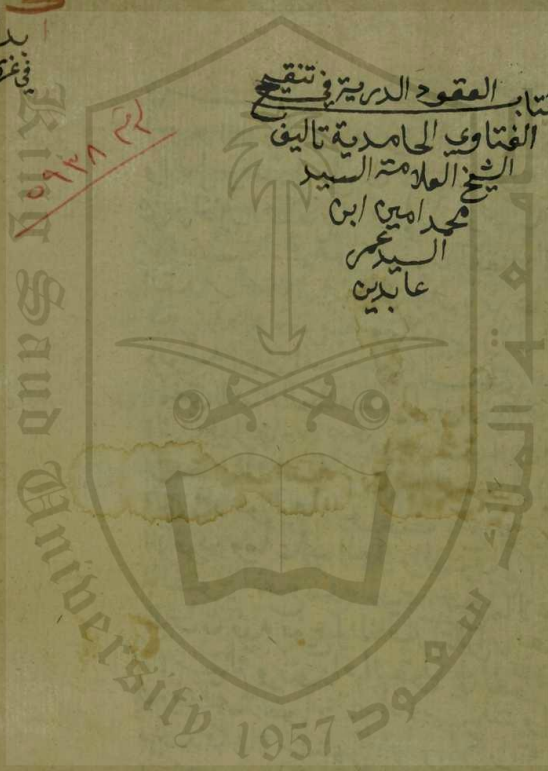 كتاب العقود الدرية في تنقيح
الفتاوي الحامدية تاليف
الشيخ العلامة السيد
محمد امين ابن
السيد عمر
عابدين
٥٩٣٨
King Saud University 1957
جامعة الملك سعود